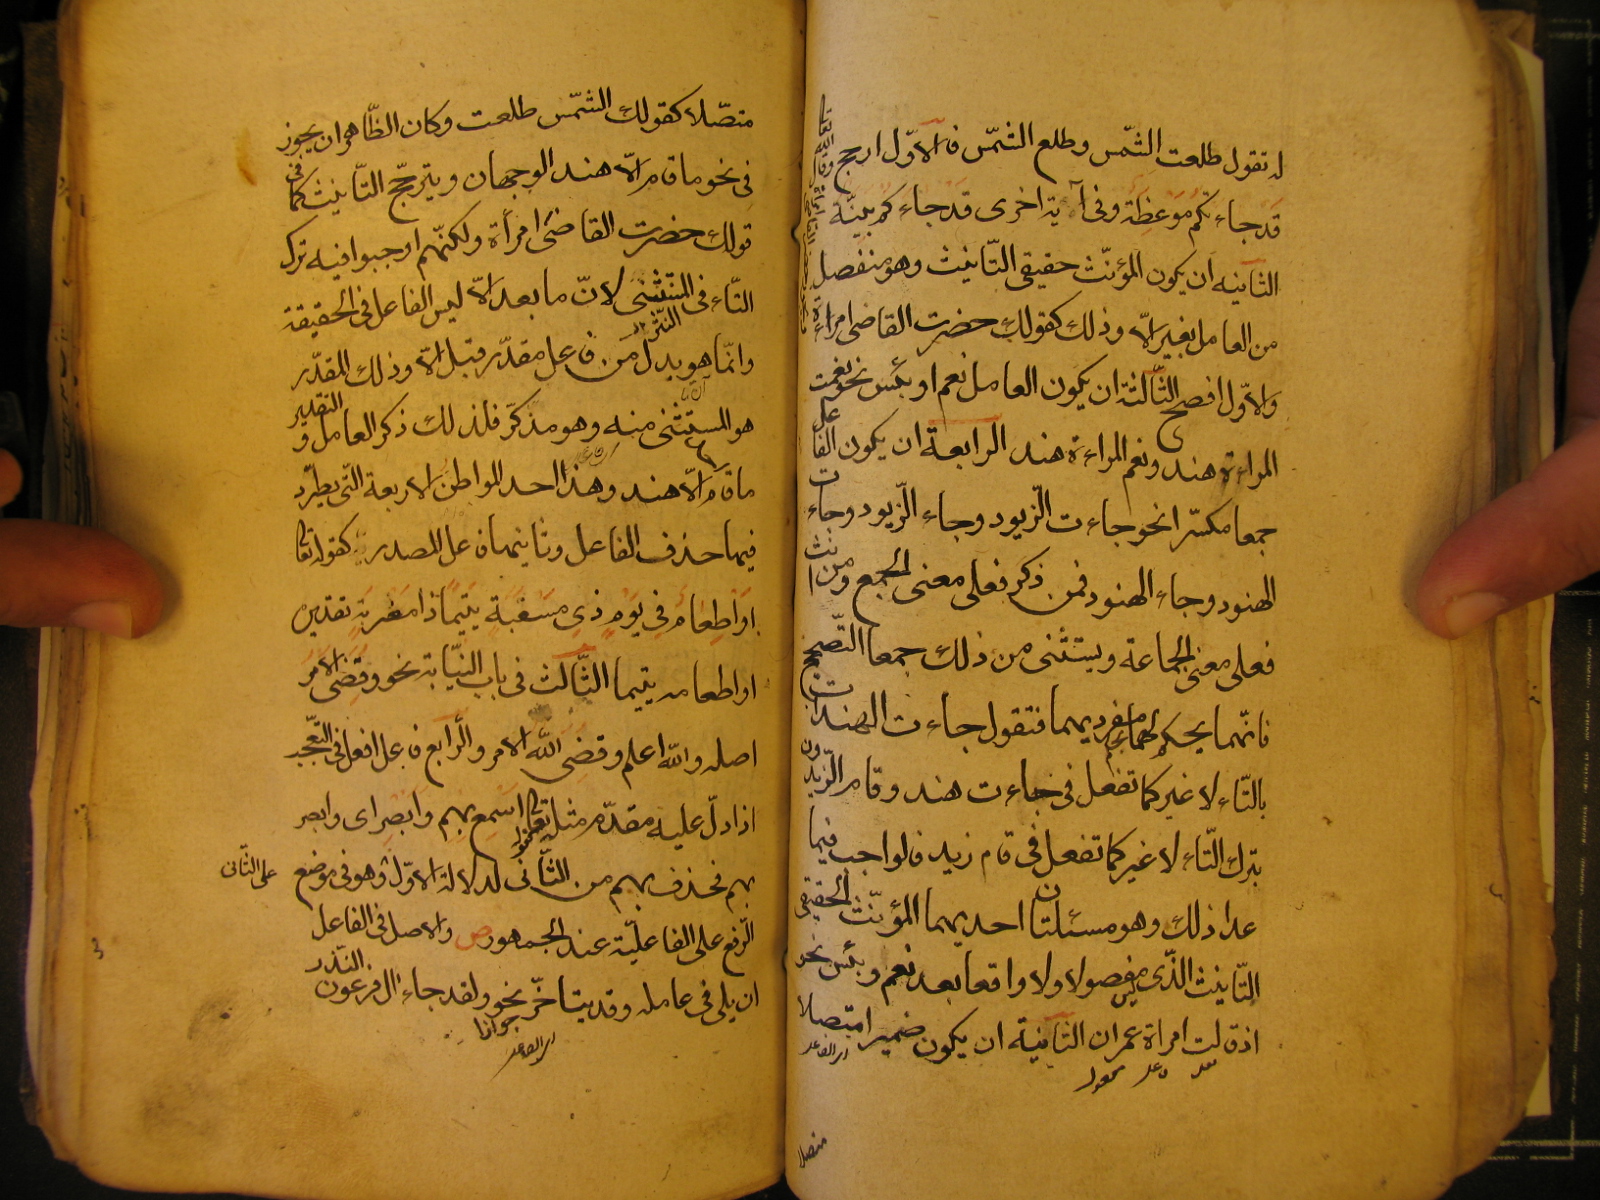 له تقول طلعت الشّمس وطلع الشّمس فالاوّل ارجح
قد جاءتكم موعظة وفى آية اخرى قد جاءكم بيّنة
الثانيه ان يكون المؤنّث حقيقى التّانيث وهو منفصل
من العامل بغير الّا وذلك كقولك حضرت القاضى امراءة
والاوّل افصح الثّالثة ان يكون العامل نعم او بئس نحو نعمت
المراءة هند ونعم المراءة هند الرابعة ان يكون الفاعل
جمعا مكسّرا نحو جاءت الزّيود وجاء الزّيود وجاءت
الهنود وجاء الهنود فمن ذكر فعلى معنى الجمع ومن انث
فعلى معنى الجماعة ويستثنى من ذلك جمعا التّصحيح
فانّهما يحكم لهما بحكم مفرديهما فتقول جاءت الهندات
بالتّاء لا غير كما تفعل فى جاءت هند وقام الزّيدون
بترك التّاء لا غير كما تفعل فى قام زيد والواجب فيما
عدا ذلك وهو مسئلتان احديهما المؤنّث الحقيقى
التّانيث الذّى ليس مفصولا ولا واقعا بعد نعم وبئس نحو
اذ قالت امراة عمران الثّانية ان يكون ضميرا متصلا
متصلا
متصّلا كقولك الشّمس طلعت وكان الظّاهر ان يجوز
فى نحو ما قام الّا هند الوجهان ويترجّح التّانيث كما فى
قولك حضرت القاضى امرأة ولكنّهم اوجبوا فيه ترك
التّاء فى النثر لانّ ما بعد الّا ليس الفاعل فى الحقيقة
وانّما هو بدل من فاعل مقدّر قبل الّا وذلك المقدّر
هو المستثنى منه وهو مذكّر فلذلك ذكر العامل والتقدير
ما قام الّا هند وهذا احد المواطن الاربعة التّى يطرّد
فيها حذف الفاعل وثانيها فاعل المصدر كقوله تعا
او اطعام فى يوم ذى مسغبة يتيما ذا مقربة تقديره
او اطعامه يتيما الثّالث فى باب النّيابة نحو وقضى الامر
اصله والله اعلم وقضى الله الامر والرّابع فاعل افعل فى التّعجب
اذا دلّ عليه مقدّم مثله كقوله تعا اسمع بهم وابصر اى وابصر
بهم فحذف بهم من الثّانى لدلالة الاوّل وهو فى موضع
على الثّانى
الرّفع على الفاعليّة عند الجمهور ص والاصل فى الفاعل
ان يلى فى عامله وقد يتاخّر نحو ولقد جاء آل فرعون النّذر
جوازا